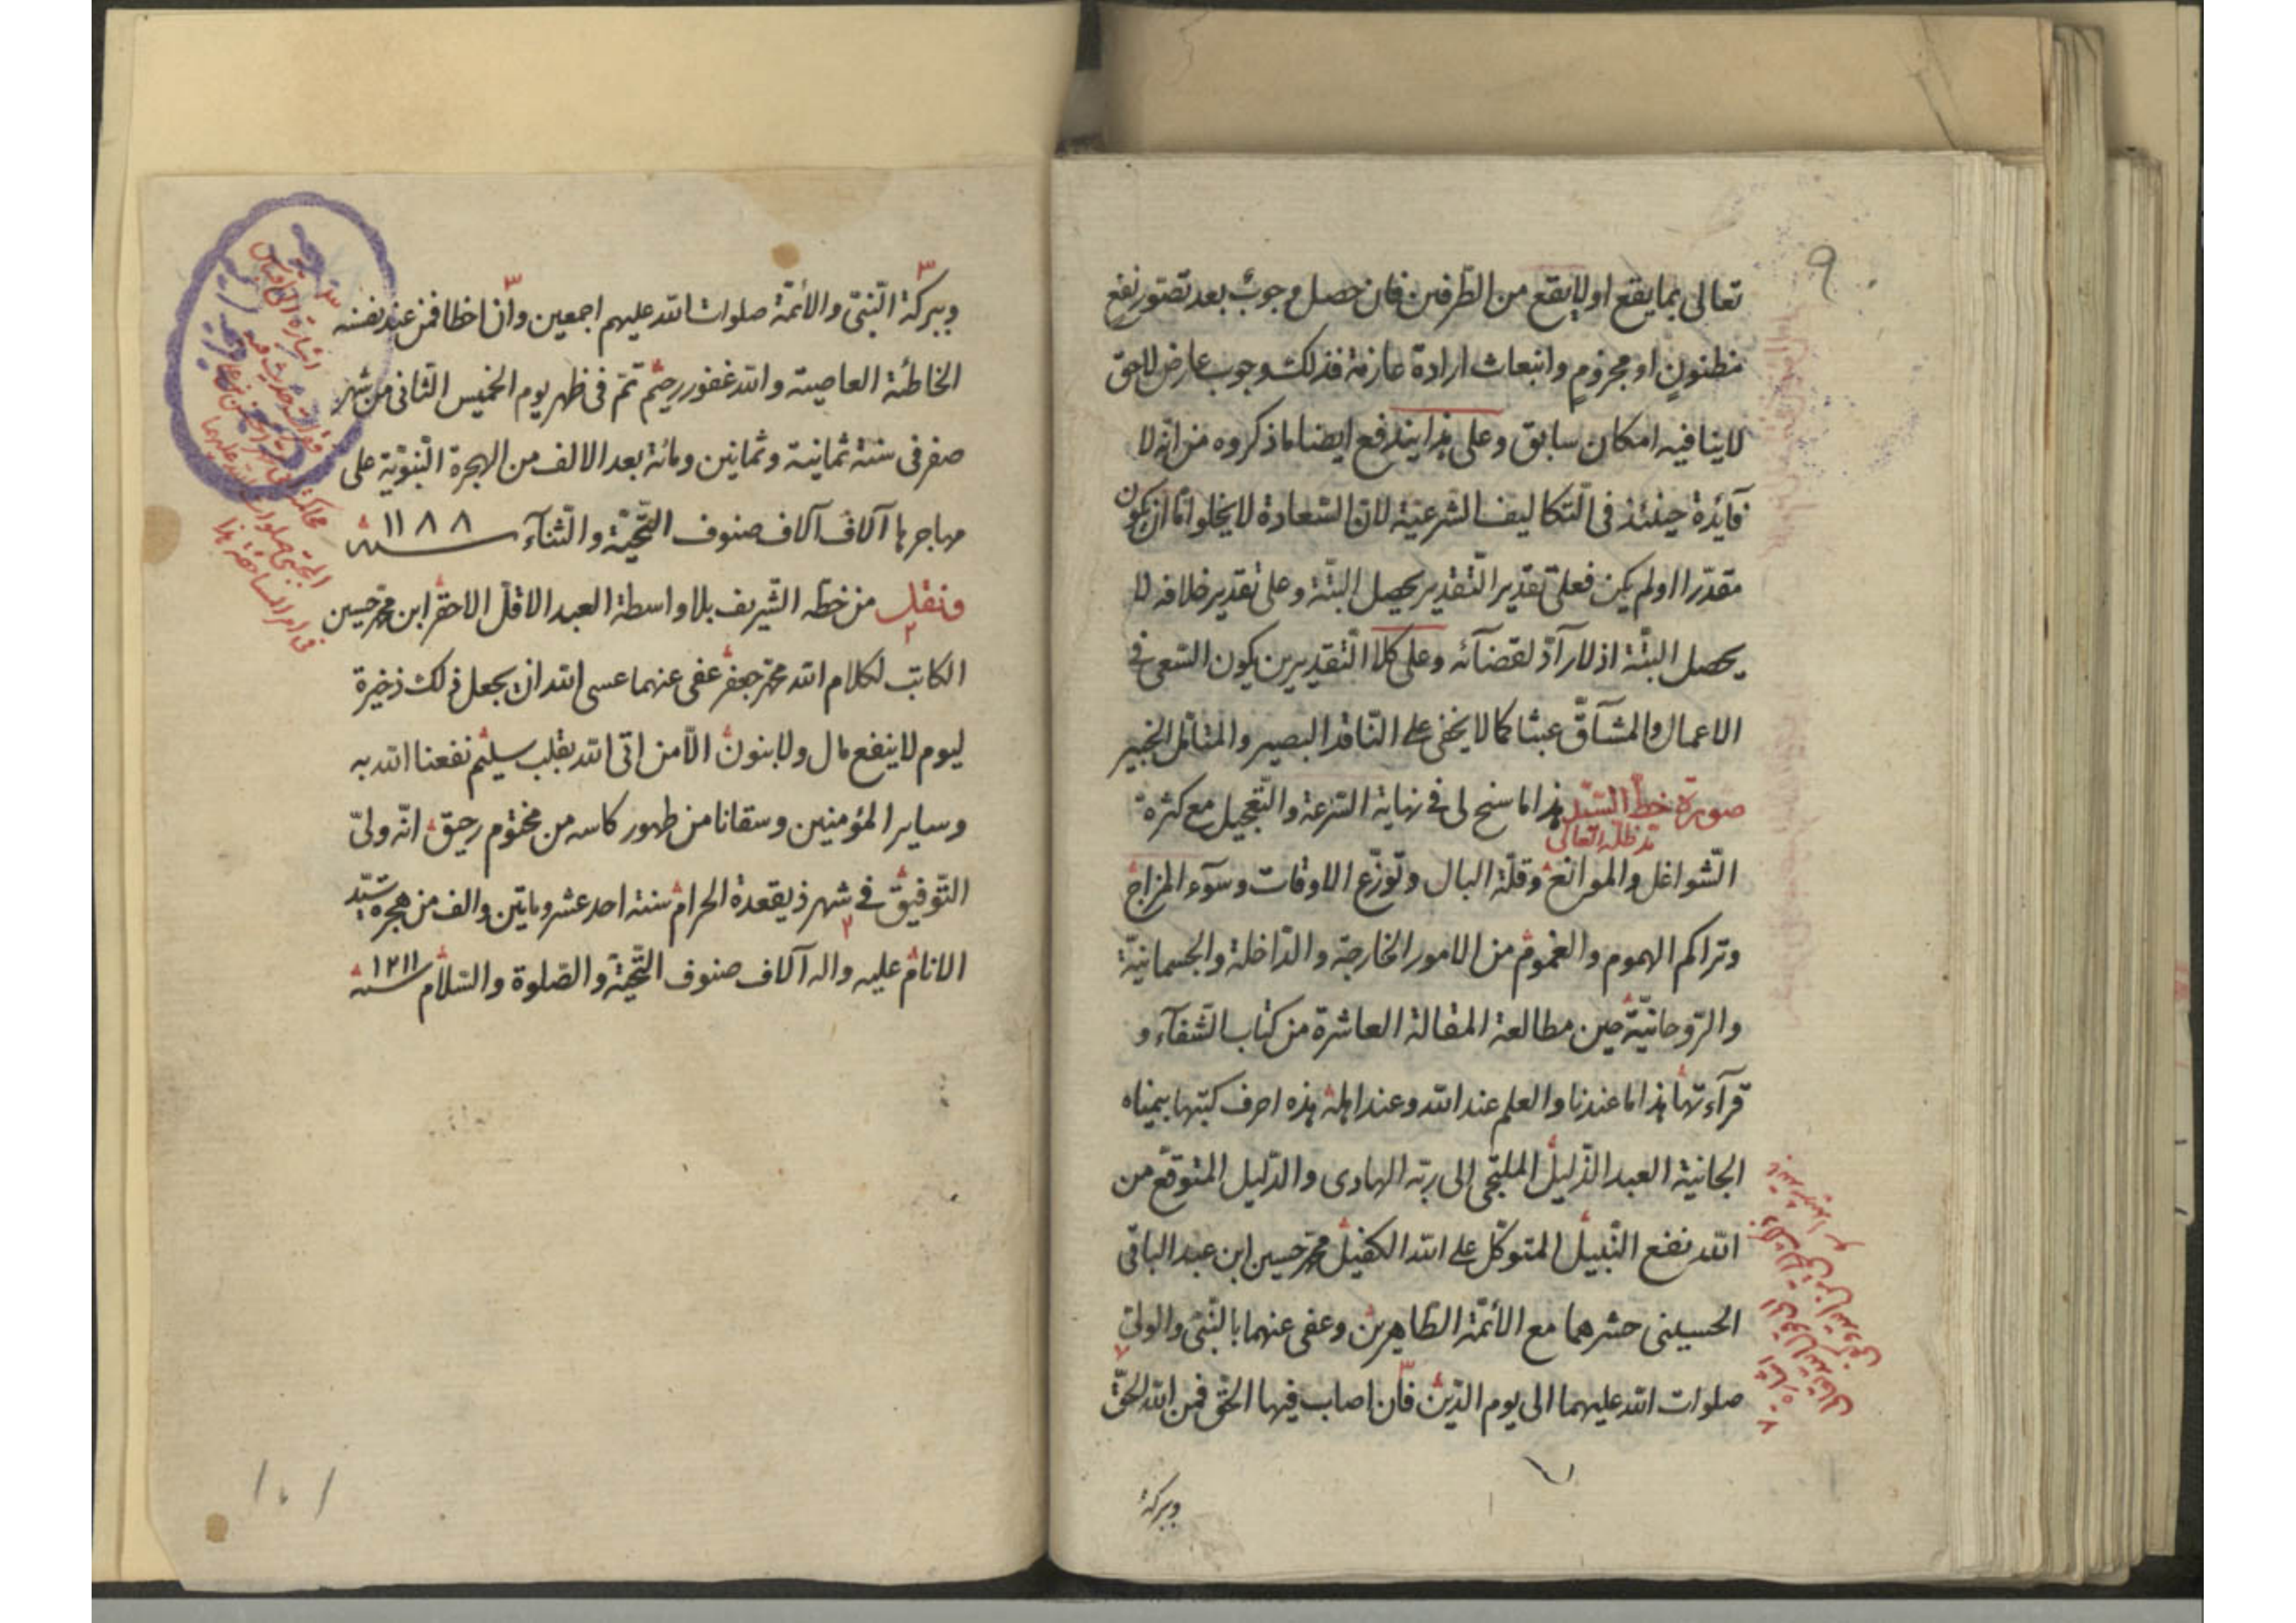 تعالى بما يقع او لا يقع من الطرفين فان حصل وجوب بعد تصور نفع
مظنون او مجزوم وانبعاث ارادة عازمة فذلك وجوب عارض لاحق
لا ينافيه امكان سابق وعلى هذا يندفع ايضا ما ذكروه من انه لا
فآئدة حينئذ فى التكاليف الشرعية لان السعادة لا يخلو اما ان يكون
مقدرا او لم يكن فعلى تقدير التقدير يحصل البتة وعلى تقدير خلافه لا
يحصل البتة اذ لا رآدّ لقضآئه وعلى كلا التقديرين يكون السعى فى
الاعمال والمشآقّ عبثا كما لا يخفى على الناقد البصير والمتامل الخبير
صورة خط السيد هذا ما سنح لى فى نهاية السرعة والتعجيل مع كثرة
مد ظله العالى
الشواغل والموانع وقلة البال وتوزّع الاوقات وسوء المزاج
وتراكم الهموم والغموم من الامور الخارجة والداخلة والجسمانية
والروحانية حين مطالعة المقالة العاشرة من كتاب الشفآء و
قرآءتها هذا ما عندنا والعلم عند الله وعند اهله هذه احرف كتبها بيمناه
الجانية العبد الذليل الملتجى الى ربه الهادى والدليل المتوقع من
الله نفع النبيل المتوكل على الله الكفيل محمد حسين ابن عبد الباقى
الحسينى حشرهما مع الأئمة الطاهرين وعفى عنهما بالنبى والولى
صلوات الله عليهما الى يوم الدين فان اصاب فيها الحق فمن الله الحق
وببركة
وببركة النبى والأئمة صلوات الله عليهم اجمعين وان اخطا فمن عند نفسه
الخاطئة العاصية والله غفور رحيم تم فى ظهر يوم الخميس الثانى من شهر
صفر فى سنة ثمانية وثمانين ومائة بعد الالف من الهجرة النبوية على
مهاجرها آلاف آلاف صنوف التحية والثنآء سنة ١١٨٨
ونقل من خطه الشريف بلا واسطة العبد الاقل الاحقر ابن محمد حسين
الكاتب لكلام الله محمد جعفر عفى عنهما عسى الله ان يجعل ذلك ذخيرة
ليوم لا ينفع مال ولا بنون الا من اتى الله بقلب سليم نفعنا الله به
وساير المؤمنين وسقانا من طهور كاسه من مختوم رحيق انه ولىّ
التوفيق فى شهر ذيقعدة الحرام سنة احد عشر وماتين والف من هجرة سيد
الانام عليه واله آلاف صنوف التحية والصلوة والسلام سنة ١٢١١
١٠١